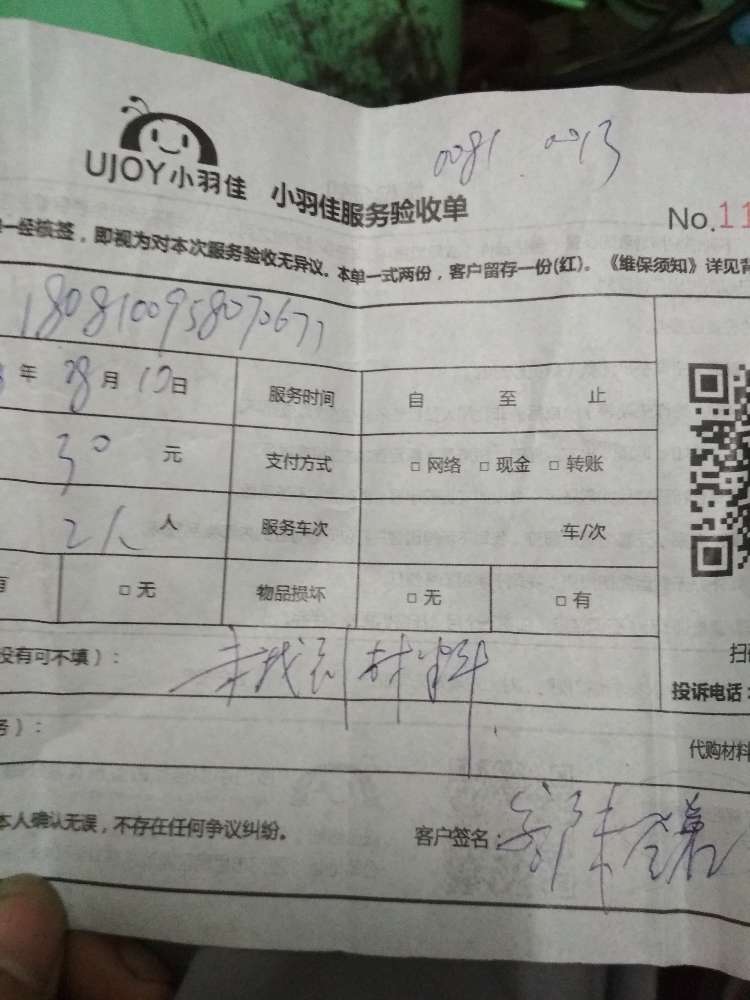 0081 0013
UJOY小羽佳 小羽佳服务验收单
No.11
一经核签，即视为对本次服务验收无异议。本单一式两份，客户留存一份(红)。《维保须知》详见背
1808100958070677
年 08月 10日 服务时间 自 至 止
30 元 支付方式 □ 网络 □ 现金 □ 转账
2人 人 服务车次 车/次
有 □ 无 物品损坏 □ 无 □ 有
没有可不填）： 未找到材料
扫
投诉电话：
务）： 代购材料
本人确认无误，不存在任何争议纠纷。 客户签名：